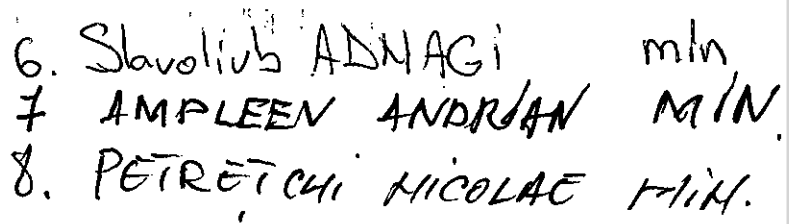 6. Slavoliub ADNAGI min
7 AMPLEEV ANDRIAN MIN.
8. PETREȚCHI NICOLAE MIN.